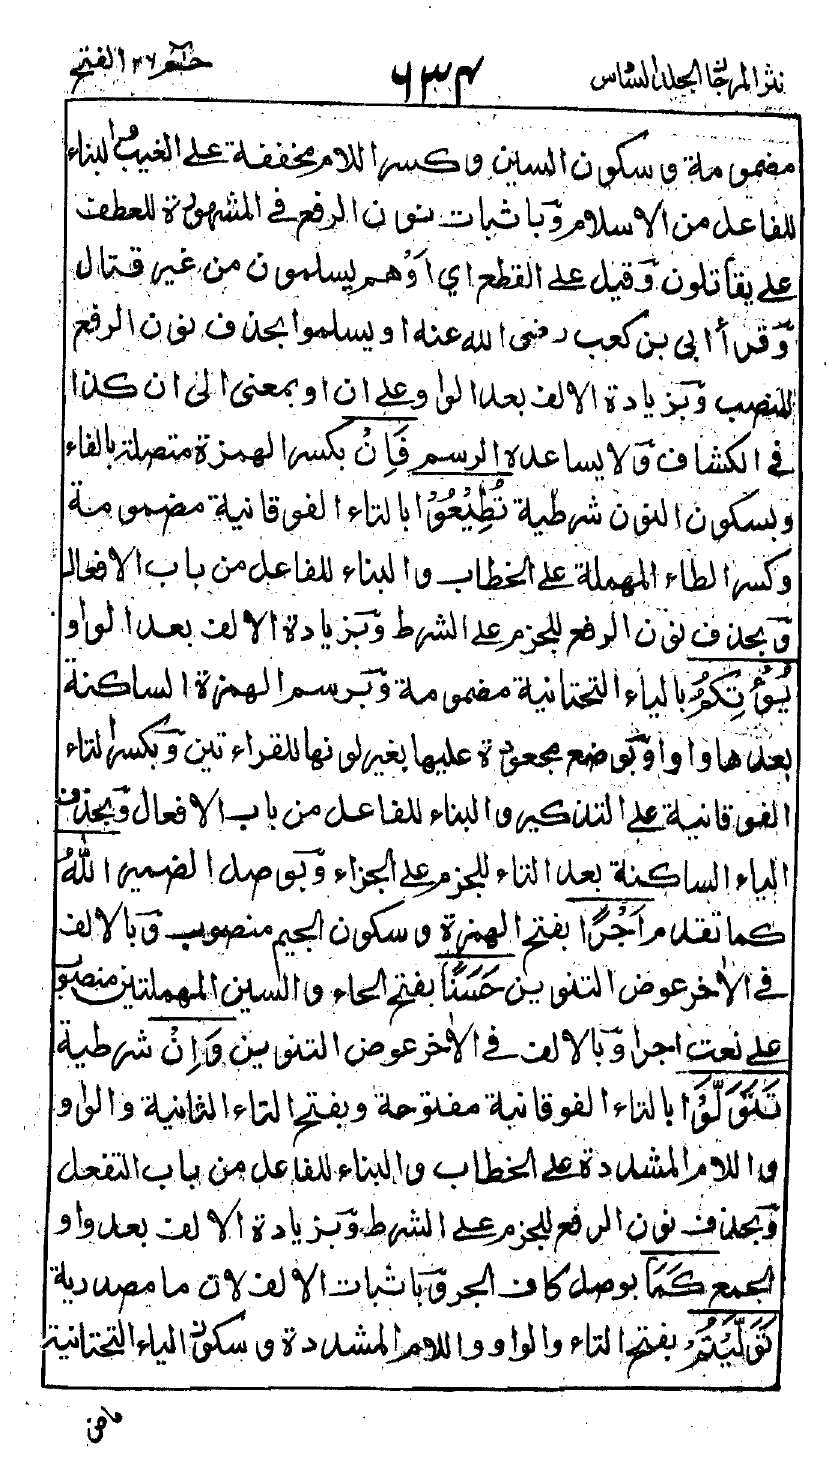 نثر المرجان الجلد السادس ٦٣٤ حٰم ٢٦ الفتح
مضمومة وسكون السين وكسر اللام مخففة على الغيب والبناء
للفاعل من الاسلام وَباثبات نون الرفع في المشهورة للعطف
على يقاتلون وَقيل على القطع اي اوهم يسلمون من غير قتال
وَقرأ ابي بن كعب رضى الله عنه او يسلموا بحذف نون الرفع
للنصب وَبزيادة الالف بعد الواو على ان او بمعنى الى ان كذا
في الكشاف وَلا يساعده الرسم فَاِنْ بكسر الهمزة متصلة بالفاء
وبسكون النون شرطية تُطِيْعُوْا بالتاء الفوقانية مضمومة
وكسر الطاء المهملة على الخطاب والبناء للفاعل من باب الافعال
وَبحذف نون الرفع للجزم على الشرط وَبزيادة الالف بعد الواو
يُؤْتِكُمُ بالياء التحتانية مضمومة وَبرسم الهمزة الساكنة
بعدها واوا وَبوضع مجعودة عليها بغير لونها للقراءتين وَبكسر التاء
الفوقانية على التذكير والبناء للفاعل من باب الافعال وَبحذف
الياء الساكنة بعد التاء للجزم على الجزاء وَبوصل الضمير اللّٰهُ
كما تقدم اَجْرًا بفتح الهمزة وسكون الجيم منصوب وَبالالف
في الاٰخر عوض التنوين حَسَنًا بفتح الحاء والسين المهملتين منصوب
على نعت اجرا وَبالالف في الاٰخر عوض التنوين وَاِنْ شرطية
تَتَوَلَّوْا بالتاء الفوقانية مفتوحة وبفتح التاء الثانية والواو
واللام المشددة على الخطاب والبناء للفاعل من باب التفعل
وَبحذف نون الرفع للجزم على الشرط وَبزيادة الالف بعد واو
الجمع كَمَا بوصل كاف الجر وَباثبات الالف لان ما مصدرية
تَوَلَّيْتُمْ بفتح التاء والواو واللام المشددة وسكون الياء التحتانية